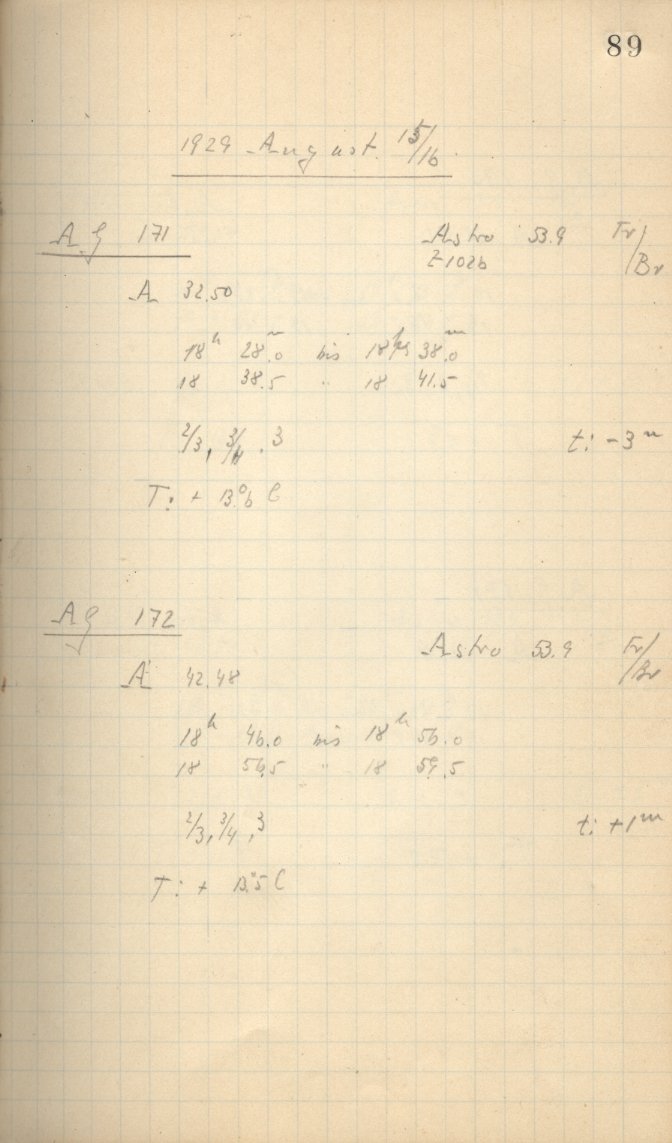 89
1929 August 15/16
AG 171 Astro 53.9 Fr/Br
Z 1026
A 32.50
18h 28m.0 bis 18h 38m.0
18 38.5 " 18 41.5
2/3, 3/4, 3 t: -3m
T: + 13°.6 C
AG 172 Astro 53.9 Fr/Br
A 42.48
18h 46.0 bis 18h 56.0
18 56.5 " 18 59.5
2/3, 3/4, 3 t: +1m
T: + 13°.5 C